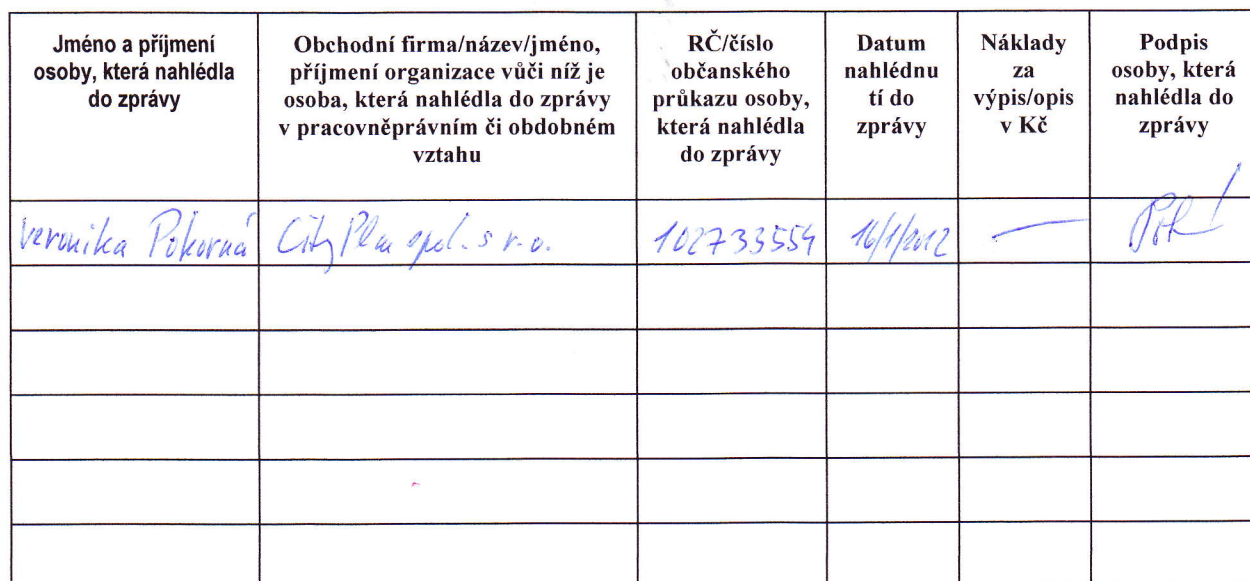 Jméno a příjmení
osoby, která nahlédla
do zprávy
Obchodní firma/název/jméno,
příjmení organizace vůči níž je
osoba, která nahlédla do zprávy
v pracovněprávním či obdobném
vztahu
RČ/číslo
občanského
průkazu osoby,
která nahlédla
do zprávy
Datum
nahlédnu
tí do
zprávy
Náklady
za
výpis/opis
v Kč
Podpis
osoby, která
nahlédla do
zprávy
Veronika Pokorná
City Plan spol. s r.o.
102733554
16/1/2012
—